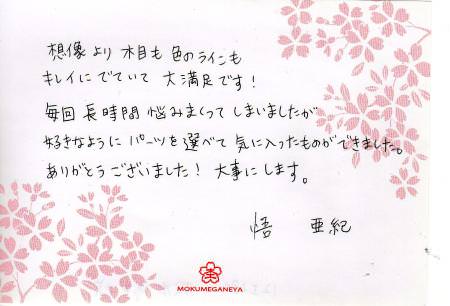 想像より 木目も 色のラインも
キレイにでていて 大満足です！
毎回 長時間 悩みまくって しまいましたが
好きなように パーツを選べて 気に入ったものができました。
ありがとうございました！ 大事にします。
悟 亜紀
MOKUMEGANEYA